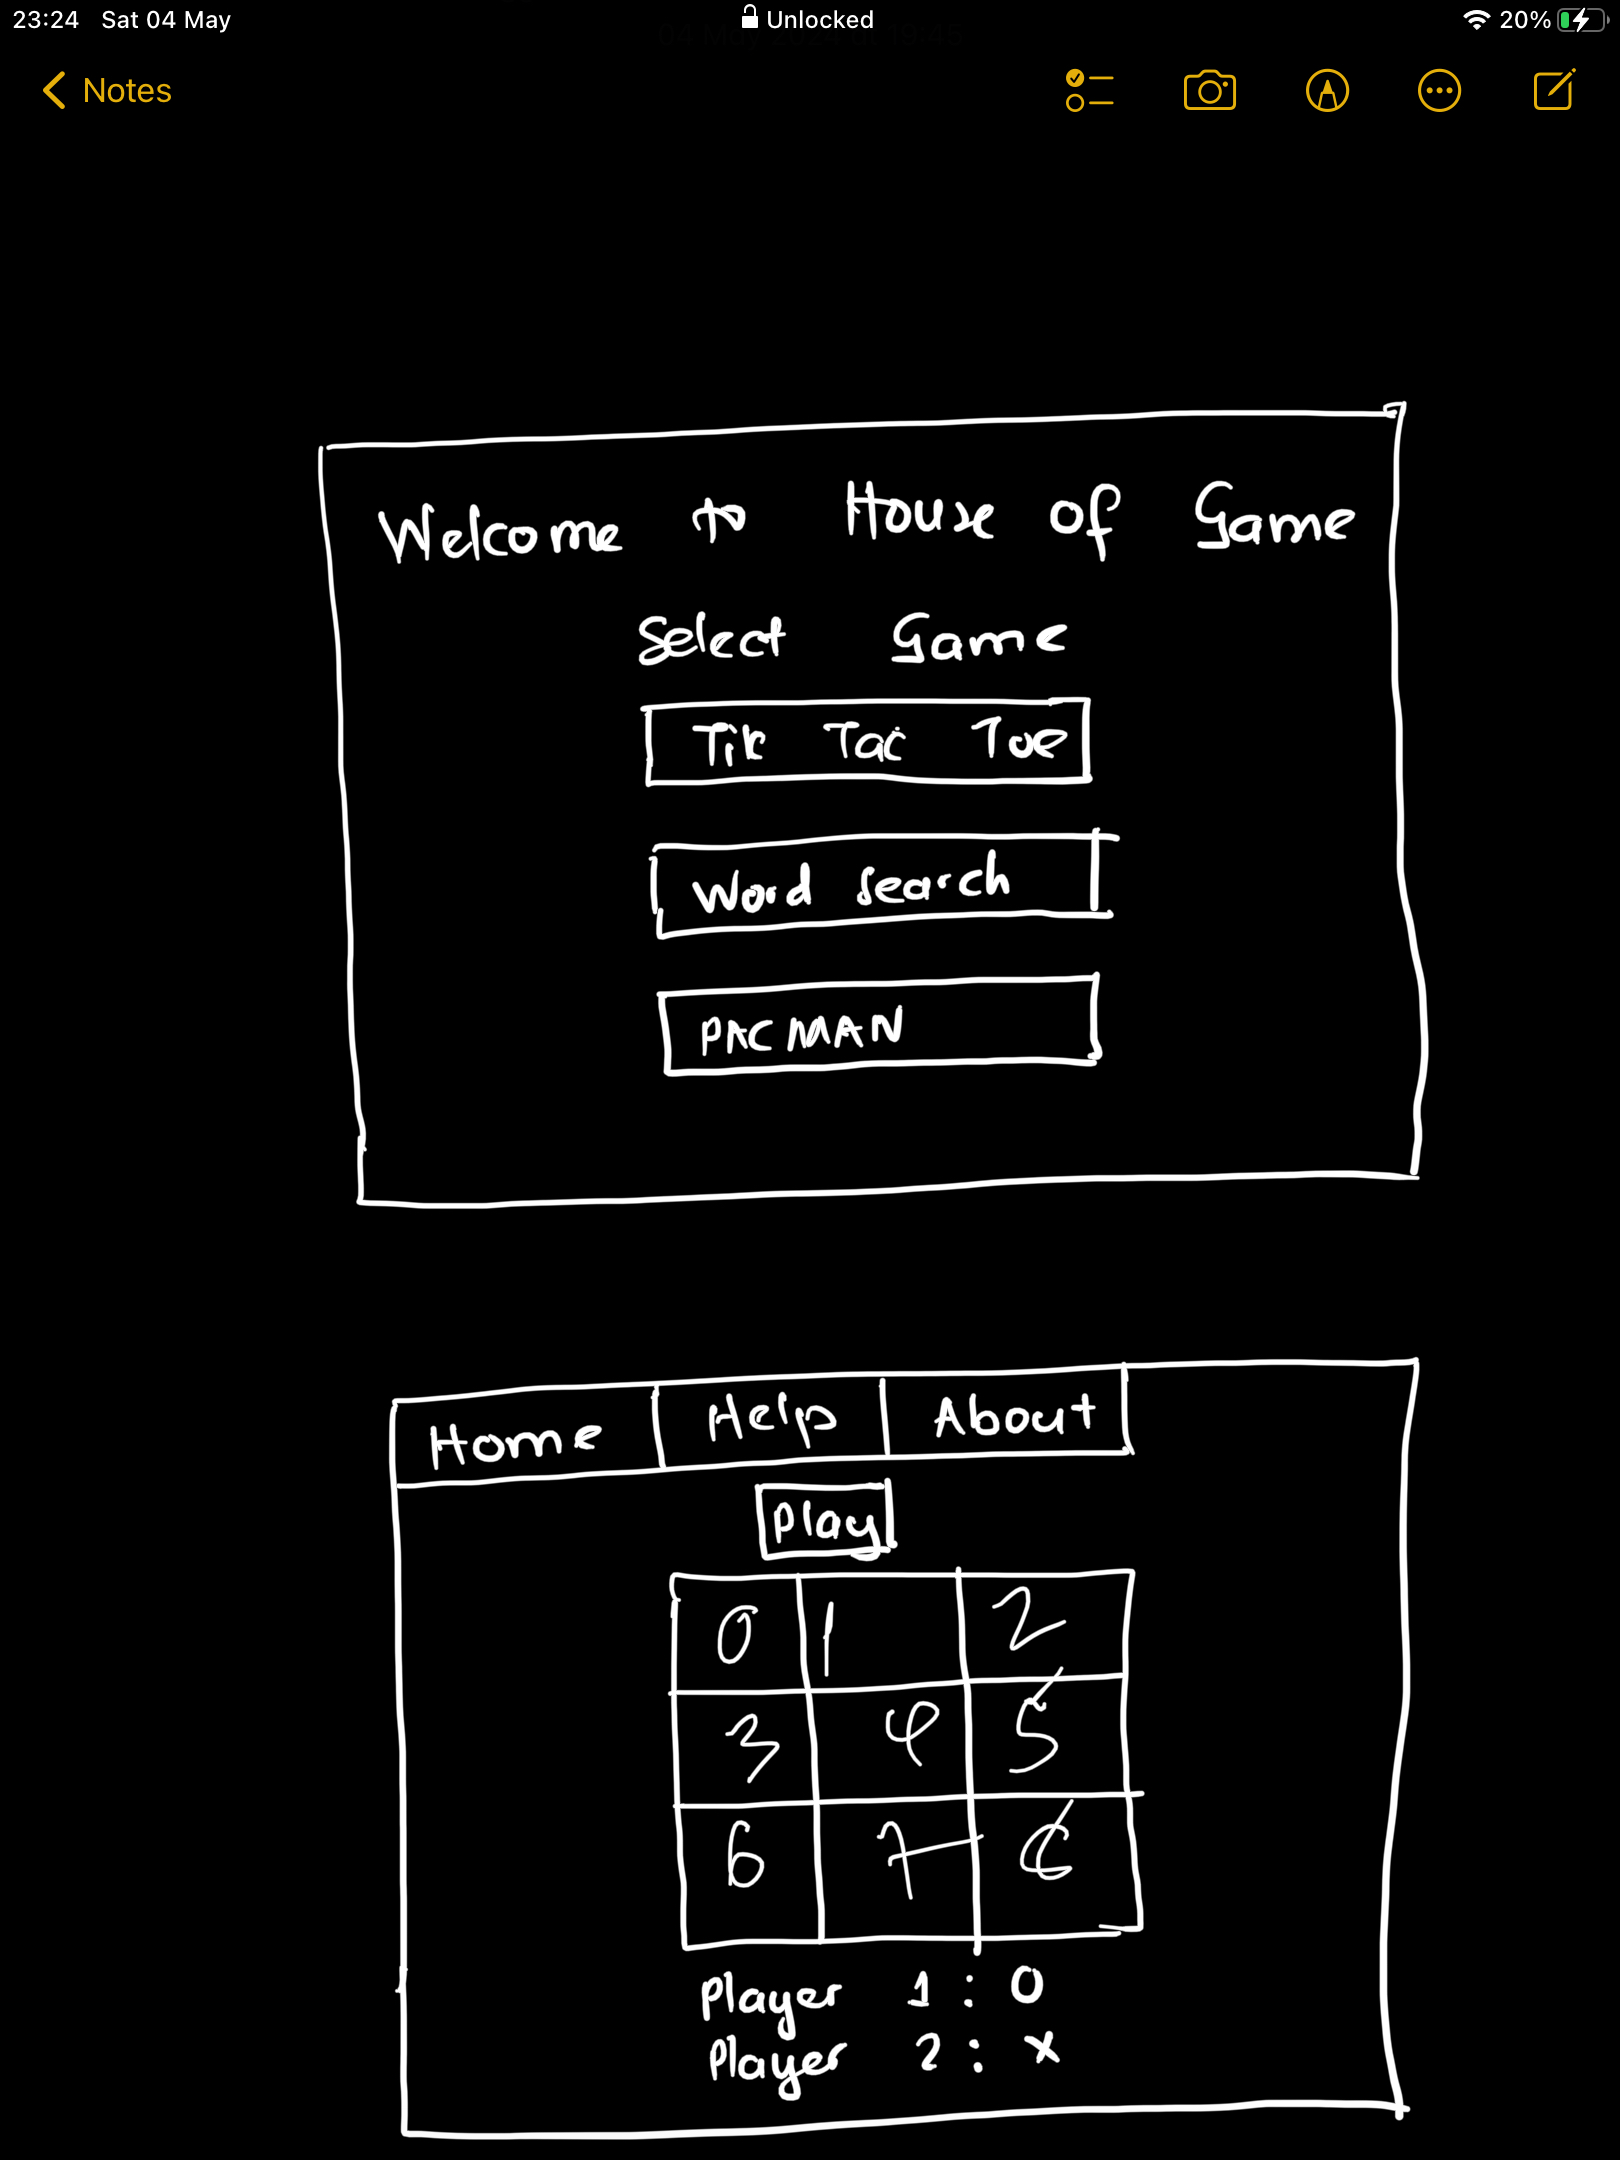 23:24 Sat 04 May Unlocked 20%
Notes
Welcome to House of Game
Select Game
Tik Tac Toe
Word Search
PACMAN
Home Help About
Play
0 1 2
3 4 5
6 7
Player 1 : O
Player 2 : X